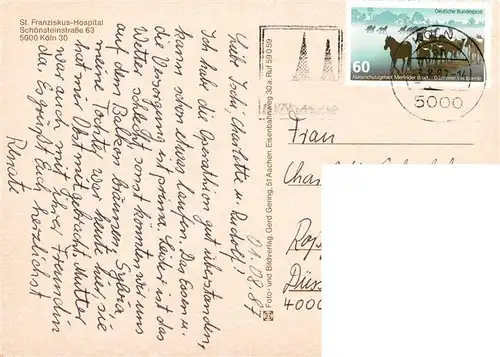 St. Franziskus-Hospital
Schönsteinstraße 63
5000 Köln 30
Liebe Charlotte u. Rudolf!
Ich habe die Operation gut überstanden,
kann schon etwas laufen. Das Essen u.
die Versorgung ist prima. Leider ist das
Wetter schlecht, sonst könnten wir uns
auf dem Balkon bräunen. Sylvia
meine Tochter war heute hier, sie
hat mir Obst mitgebracht. Mutter
war auch mit ihrer Freundin
da. Es grüßt Euch herzlichst
Renate
01.08.87
Foto- und Bildverlag, Gerd Gering, 51 Aachen, Eisenbahnweg 30a, Ruf 59059
Deutsche Bundespost
60
Naturschutzgebiet Merfelder Bruch · Dülmener Wildpferde
5000
Frau
4000